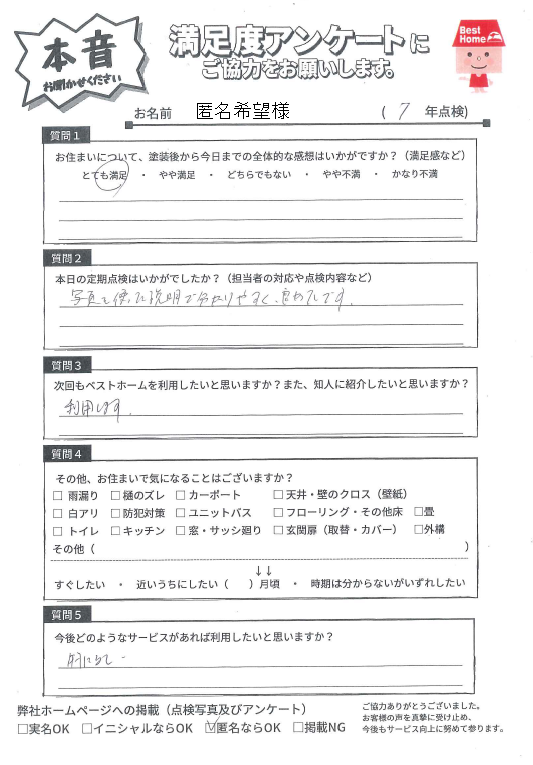 本音
お聞かせください
満足度アンケートに
ご協力をお願いします。
Best Home
お名前 匿名希望様 ( 7 年点検)
質問1
お住まいについて、塗装後から今日までの全体的な感想はいかがですか?(満足感など)
とても満足 ・ やや満足 ・ どちらでもない ・ やや不満 ・ かなり不満
質問2
本日の定期点検はいかがでしたか?(担当者の対応や点検内容など)
写真を使った説明で分かりやすく、良かったです。
質問3
次回もベストホームを利用したいと思いますか?また、知人に紹介したいと思いますか?
利用します。
質問4
その他、お住まいで気になることはございますか?
□ 雨漏り □ 樋のズレ □ カーポート □ 天井・壁のクロス(壁紙)
□ 白アリ □ 防犯対策 □ ユニットバス □ フローリング・その他床 □畳
□ トイレ □ キッチン □ 窓・サッシ廻り □ 玄関扉(取替・カバー) □外構
その他( )
↓↓
すぐしたい ・ 近いうちにしたい( )月頃 ・ 時期は分からないがいずれしたい
質問5
今後どのようなサービスがあれば利用したいと思いますか?
弊社ホームページへの掲載(点検写真及びアンケート)
□実名OK □イニシャルならOK ☑匿名ならOK □掲載NG
ご協力ありがとうございました。
お客様の声を真摯に受け止め、
今後もサービス向上に努めて参ります。